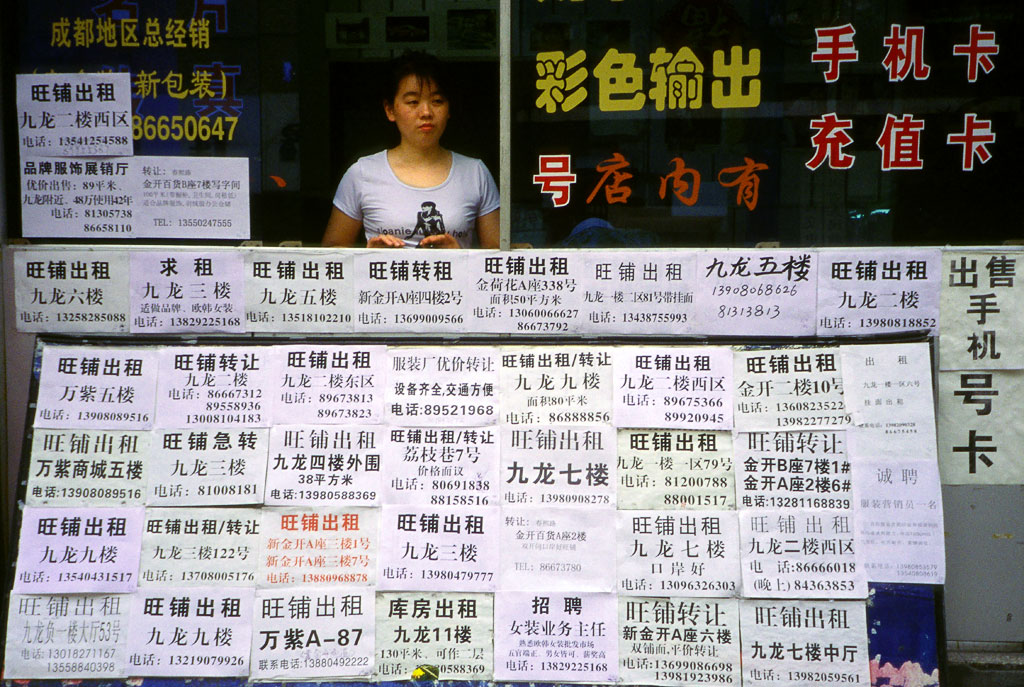 成都地区总经销
新包装）
86650647
彩色输出
号店内有
手机卡
充值卡
旺铺出租
九龙二楼西区
电话：13541254588
品牌服饰展销厅
优价出售：89平米、
九龙附近、48万使用42年
电话：81305738
86658110
转让：春熙路
金开百货B座7楼写字间
TEL：13550247555
旺铺出租
九龙六楼
电话：13258285088
求租
九龙三楼
适做品牌、欧韩女装
电话：13829225168
旺铺出租
九龙五楼
电话：13518102210
旺铺转租
新金开A座四楼2号
电话：13699009566
旺铺出租
金荷花A座338号
面积50平方米
电话：13060066627
86673792
旺铺出租
九龙一楼二区81号带挂面
电话：13438755993
九龙五楼
13908068626
81313813
旺铺出租
九龙二楼
电话：13980818852
出售
手机
号
卡
旺铺出租
万紫五楼
电话：13908089516
旺铺转让
九龙二楼
电话：86667312
89558936
13008104183
旺铺出租
九龙二楼东区
电话：89673813
89673823
服装厂优价转让
设备齐全,交通方便
电话:89521968
旺铺出租/转让
九龙九楼
面积80平米
电话：86888856
旺铺出租
九龙二楼西区
电话：89675366
89920945
旺铺出租
金开二楼10号
电话：1360823522
13982277279
出租
九龙一楼一区六号
挂面出租
旺铺出租
万紫商城五楼
电话:13908089516
旺铺急转
九龙三楼
电话：81008181
旺铺出租
九龙四楼外围
38平方米
电话:13980588369
旺铺出租/转让
荔枝巷7号
价格面议
电话：80691838
88158516
旺铺出租
九龙七楼
电话：13980908278
旺铺出租
九龙一楼一区79号
电话：81200788
88001517
旺铺转让
金开B座7楼1#
金开A座2楼6#
电话:13281168839
诚聘
服装营销员一名
旺铺出租
九龙九楼
电话：13540431517
旺铺出租/转让
九龙三楼122号
电话：13708005176
旺铺出租
新金开A座三楼1号
新金开A座三楼7号
电话：13880968878
旺铺出租
九龙三楼
电话：13980479777
转让：春熙路
金开百货A座2楼
双开间口岸好旺铺
TEL：86673780
旺铺出租
九龙七楼
口岸好
电话：13096326303
旺铺出租
九龙二楼西区
电 话:86666018
(晚上) 84363853
旺铺出租
九龙负一楼大厅53号
电话：13018271167
13558840398
旺铺出租
九龙九楼
电话：13219079926
旺铺出租
万紫A-87
联系电话:13880492222
库房出租
九龙11楼
130平米、可作二层
招聘
女装业务主任
熟悉欧韩女装批发市场
五官端正、男女皆可、薪奖高
电话：13829225168
旺铺转让
新金开A座六楼
双铺面,平价转让
电话:13699086698
13981923986
旺铺出租
九龙七楼中厅
电话：13982059561